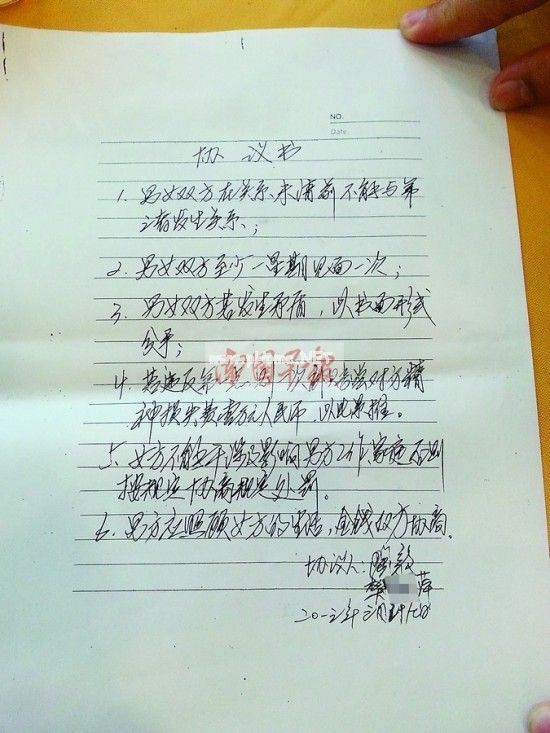 NO.
Date.
协议书
1. 男女双方在关系未清前不能与第
三者发生关系；
2. 男女双方至少一星期见面一次；
3. 男女双方若发生矛盾，以书面形式
分手；
南国早报
4. 若违反第一 对方精
神损失费壹万元人民币，以此类推。
5. 女方不能干涉及影响男方工作家庭否则
按规定协商规定处罚。
6. 男方应照顾女方的生活，金钱双方协商。
协议人：陶毅
萍
二〇一三年